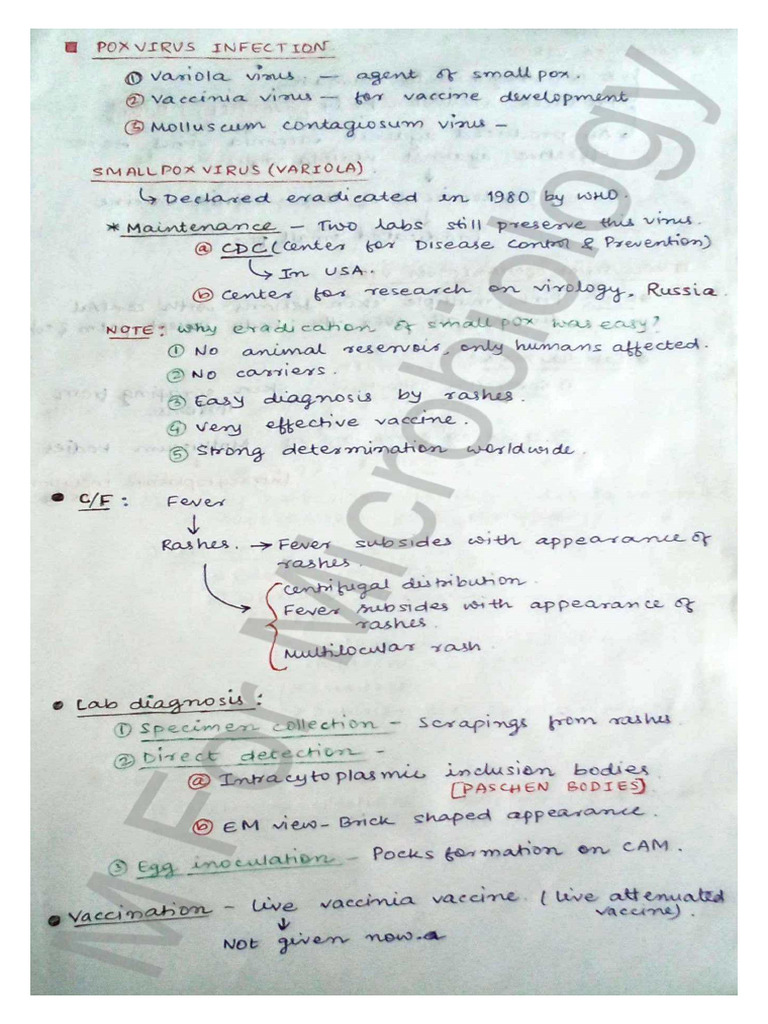 ■ POX VIRUS INFECTION
① Variola virus. — agent of smallpox.
② Vaccinia virus — for vaccine development
③ Molluscum contagiosum virus —
SMALLPOX VIRUS (VARIOLA)
↳ Declared eradicated in 1980 by WHO.
* Maintenance — Two labs still preserve this virus.
ⓐ CDC (Center for Disease Control & Prevention)
↳ In USA.
ⓑ Center for research on virology, Russia.
NOTE: Why eradication of smallpox was easy?
① No animal reservoir, only humans affected.
② No carriers.
③ Easy diagnosis by rashes.
④ Very effective vaccine.
⑤ Strong determination worldwide.
• C/F : Fever
↓
Rashes. → Fever subsides with appearance of
rashes.
Centrifugal distribution.
Fever subsides with appearance of
rashes.
Multilocular rash.
• Lab diagnosis :
① Specimen collection - Scrapings from rashes.
② Direct detection -
ⓐ Intracytoplasmic inclusion bodies.
[PASCHEN BODIES]
ⓑ EM view - Brick shaped appearance.
③ Egg inoculation - Pocks formation on CAM.
• Vaccination - Live vaccinia vaccine. (live attenuated
vaccine).
↓
Not given now.
M For Microbiology